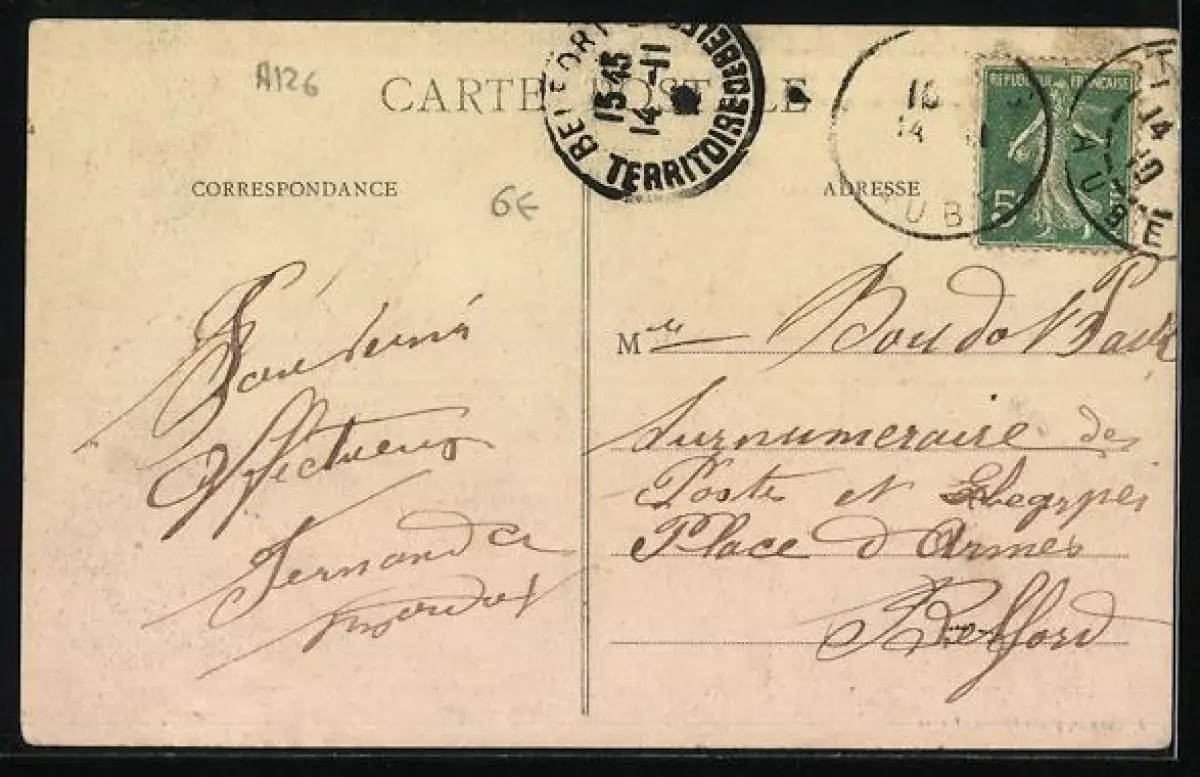 A126
CARTE POSTALE
BELFORT
15 45
14 -11
TERRITOIRE DE BELFORT
10
14
UB
REPUBLIQUE FRANÇAISE
5
14
10
AUBE
CORRESPONDANCE
6€
ADRESSE
Souvenir
Affectueux
Fernande
Mlle
Surnumeraire des
Poste et
Place d Armes
Belfford